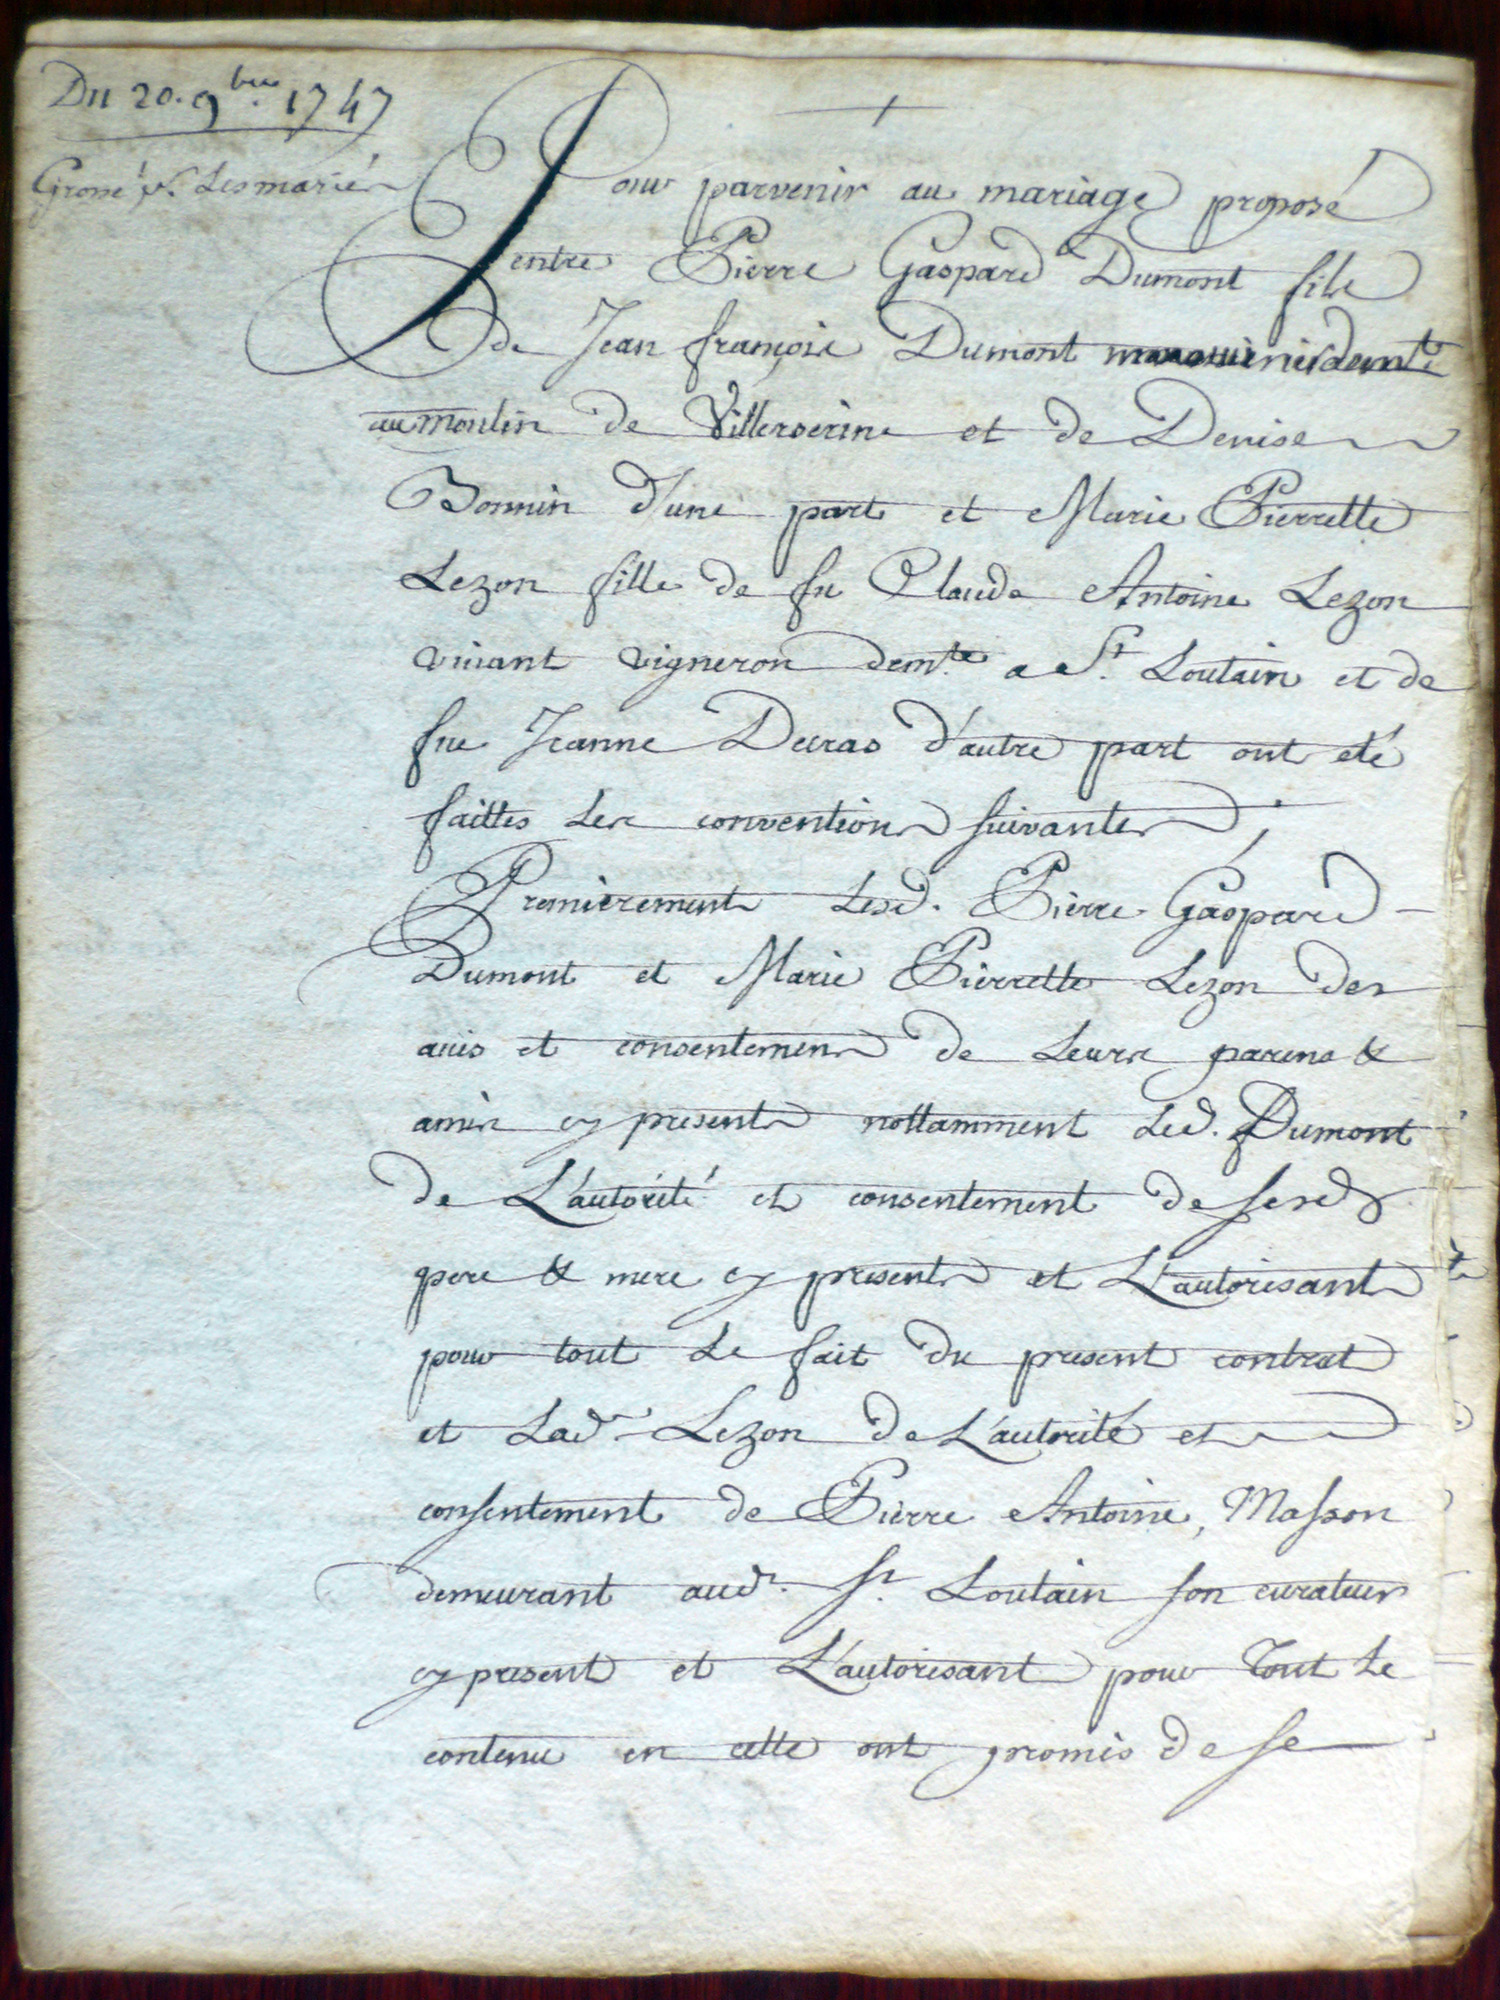 Du 20. 9bre 1747
Grossé pr. les mariés
Pour parvenir au mariage proposé
entre Pierre Gaspard Dumont fils
de Jean françois Dumont demt
au moulin de Villerserine et de Denise
Bonnin d'une part et Marie Pierrette
Lezon fille de fu Claude Antoine Lezon
vivant vigneron demte a St Loutain et de
fue Jeanne Decras d'autre part ont eté
faittes les conventions suivantes,
Premierement lesd. Pierre Gaspard
Dumont et Marie Pierrette Lezon des
avis et consentemens de leurs parens &
amis cy presents nottamment led. Dumont
de L'autorité et consentement de sesds
pere & mere cy presents et L'autorisants
pour tout le fait du present contrat
et lade Lezon de L'autorité et
consentement de Pierre Antoine, Masson
demeurant audt. St. Loutain son curateur
cy present et L'autorisant pour tout le
contenu en cette ont promis de se